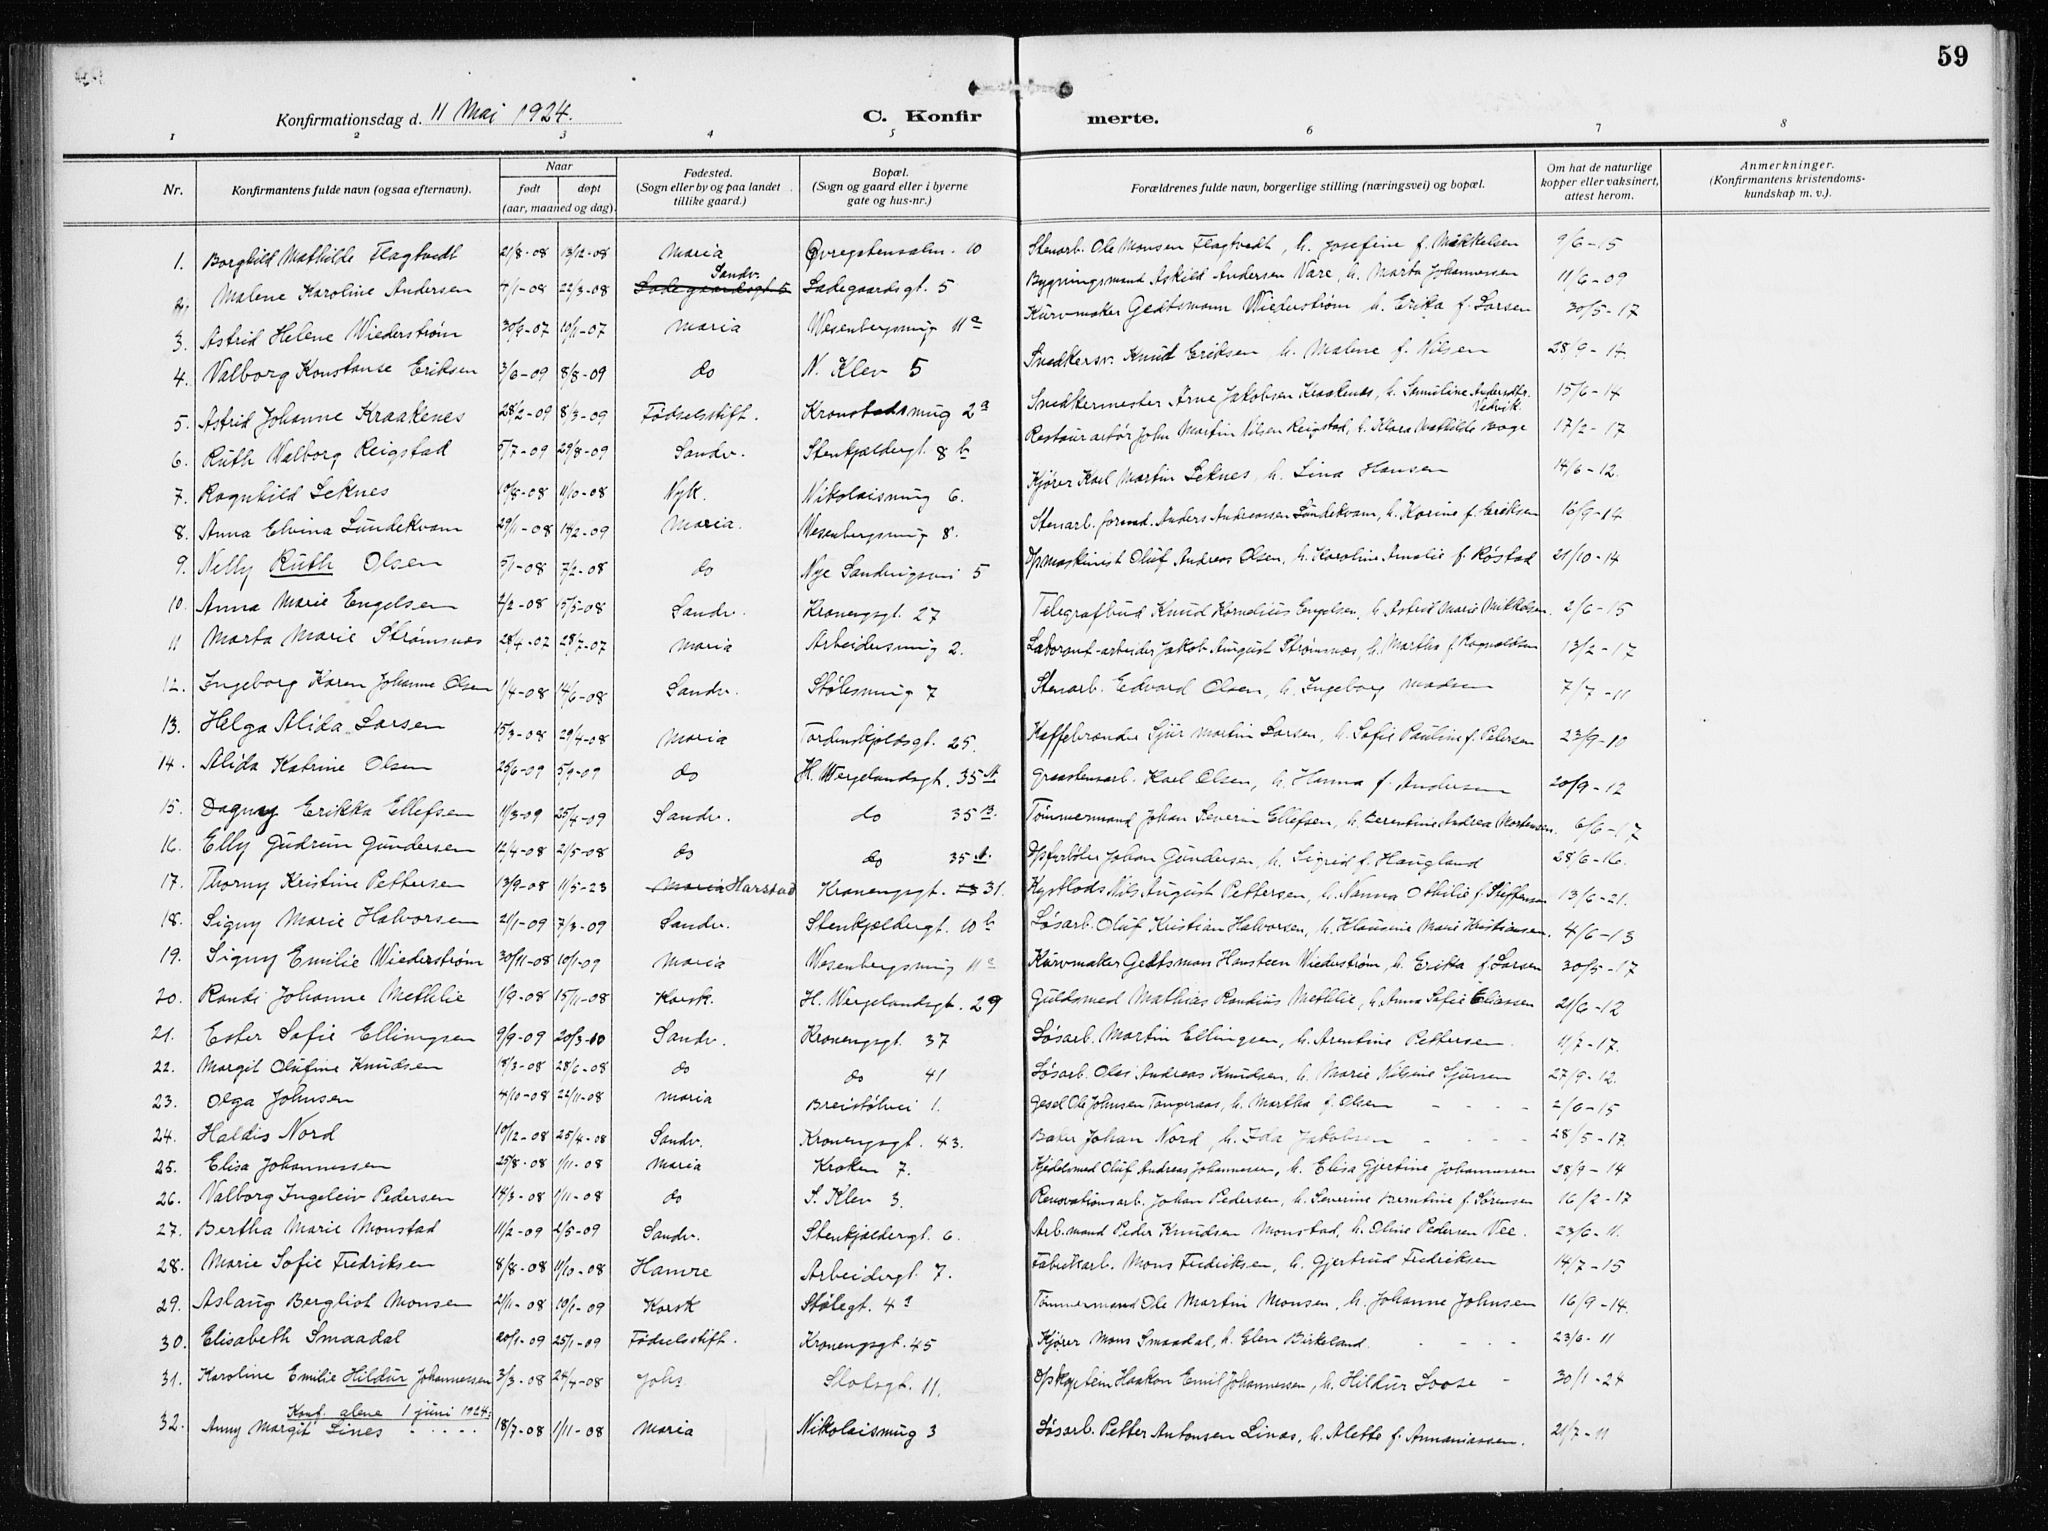 59
Konfirmationsdag d. 11 Mai 1924. C. Konfirmerte.
1 2 3 4 5 6 7 8
Nr. Konfirmantens fulde navn (ogsaa efternavn). Naar født døpt (aar, maaned og dag). Fødested. (Sogn eller by og paa landet tillike gaard.) Bopæl. (Sogn og gaard eller i byerne gate og hus-nr.) Forældrenes fulde navn, borgerlige stilling (næringsvei) og bopæl. Om hat de naturlige kopper eller vaksinert, attest herom. Anmerkninger. (Konfirmantens kristendomskundskap m. v.).
1. Borghild Mathilde Flagtvedt 21/8-08 13/12-08 Maria Øvregstensalm. 10 Stenarb. Ole Monsen Flagtvedt, h. Josefine f. Mikkelsen 9/6-15
Malene Karoline Andersen 7/1-08 22/3-08 Sandv. Ladegaardsgt. 5 Bygningsmand Askild Andersen Vare, h. Marta Johannessen 11/6-09
3. Astrid Helene Wiederstrøm 30/9-07 10/11-07 Maria Wesenbergsmug 11a Kurvmaker Gedtsmann Wiederstrøm h. Erika f. Larsen 30/5-17
4. Valborg Konstanse Eriksen 3/6-09 8/8-09 do N. Klev 5 Snedkersv. Knud Eriksen h. Malene f. Nilsen 28/9-14.
5. Astrid Johanne Kraakenes 28/2-09 8/3-09 Fødselsstift. Kronstadsmug 2a Snedkermester Arne Jakobsen Kraakenes, h. Samuline Andersdtr. Vedvik. 15/6-14
6. Ruth Valborg Reigstad 5/7-09 29/8-09 Sandv. Stenkjeldergt. 8b Restauratør John Martin Nilsen Reigstad, h. Klara Mathilde Boge 17/2-17
7. Ragnhild Seknes 10/8-08 11/10-08 Nyk. Nikolaismug 6. Kjører Karl Martin Seknes, h. Lina Hansen 14/6-12.
8. Anna Elvina Lundekvam 29/11-08 14/2-09 Maria. Wesenbergsmug 8. Stenarb. formd. Anders Andreassen Lundekvam, h. Karine f. Eriksen 16/9-14
9. Nelly Ruth Olsen 5/1-08 7/2-08 do Nye Sandvigsvei 5 Dpmaskinist Oluf Andreas Olsen, h. Karoline Amalie f. Røstad 21/10-14
10. Anna Marie Engelsen 2/2-08 15/5-08 Sandv. Kronengsgt. 27 Telegrafbud Knud Kornelius Engelsen, h. Astrid Marie Mikkelsen. 2/6-15
11 Marta Marie Strømsnæs 28/4-07 28/7-07 Maria Arbeidersmug 2. Laborant-arbeider Jakob August Strømsnæs, h. Martha f. Ragnvaldsen 13/2-17
12. Ingeborg Karen Johanne Olsen 1/4-08 14/6-08 Sandv. Stølesmug 7 Stenarb. Edvard Olsen, h. Ingeborg Madsen 7/7-11
13. Helga Alida Larsen 15/3-08 29/4-08 Maria Tordenskjoldsgt. 25. Kaffebrænder Sjur Martin Larsen, h. Sofie Pauline f. Petersen 23/9-10
14. Alida Katrine Olsen 25/6-09 5/9-09 do H. Wergelandsgt. 35 A Graastensarb. Karl Olsen, h. Hanna f. Andersen 20/9-12
15. Dagny Erikka Ellefsen 11/3-09 25/4-09 Sandv. do 35 B. Tømmermand Johan Severin Ellefsen, h. Berentine Andrea Mortensen. 6/6-17
16. Elly Gudrun Gundersen 12/4-08 21/5-08 do do 35 A. Dpfyrbøter Johan Gundersen, h. Sigrid f. Haugland 28/6-16.
17. Thorny Kristine Pettersen 13/9-08 11/5-23 Maria Harstad Kronengsgt. 31. Kystlods Nils August Pettersen, h. Nanna Othilie f. Steffensen 13/6-21.
18. Signy Marie Halvorsen 21/1-09 7/3-09 Sandv. Stenkjeldergt. 10b Løsarb. Oluf Kristian Halvorsen, h. Klausine Marie Kristiansen. 4/6-13
19. Signy Emilie Wiederstrøm 30/11-08 10/1-09 Maria Wesenbergsmug 11a Kurvmaker Gedtsmann Hansteen Wiederstrøm, h. Erika f. Larsen 30/5-17
20. Randi Johanne Methlie 1/9-08 15/11-08 Korsk. H. Wergelandsgt. 29 Guldsmed Mathias Randius Methlie, h. Anna Sofie Eliassen 21/6-12
21. Ester Sofie Ellingsen 9/9-09 20/3-10 Sandv. Kronengsgt. 37 Løsarb. Martin Ellingsen, h. Arentine Pettersen. 11/7-17.
22. Margit Olufine Knudsen 18/3-08 28/6-08 do do 41 Løsarb. Olai Andreas Knudsen, h. Marie Nilsine Sjursen 27/9-12.
23. Olga Johnsen 4/10-08 22/11-08 Maria Breistølvei 1. Gesel Ole Johnsen Tangeraas, h. Martha f. Olsen 2/6-15
24. Haldis Nord 10/12-08 25/4-08 Sandv. Kronengsgt. 43. Baker Johan Nord, h. Ida Jakobsen 28/5-17.
25. Elisa Johannessen 25/8-08 1/11-08 Maria Kroken 7. Kjedelsmed Oluf Andreas Johannessen, h. Elisa Gjertine Johannessen 28/9-14
26. Valborg Ingeleiv Pedersen 14/3-08 1/11-08 do S. Klev 3. Renovationsarb. Johan Pedersen, h. Severine Berntine f. Sørensen 16/2-17
27. Bertha Marie Monstad 11/2-09 2/5-09 Sandv. Stenkjeldergt. 6. Arb.mand Peder Knudsen Monstad, h. Oline Pedersen Vee. 23/6-11.
28. Marie Sofie Fredriksen 8/8-08 11/10-08 Hamre Arbeidergt. 7. Fabrikarb. Mons Fredriksen, h. Gjertrud Fredriksen 14/7-15
29. Aslaug Bergliot Monsen 21/11-08 10/1-09 Korsk Stølegt. 4a Tømmermand Ole Martin Monsen, h. Johanne Johnsen 16/9-14.
30. Elisabeth Smaadal 20/1-09 25/1-09 Fødselsstift. Kronengsgt. 45 Kjører Mons Smaadal, h. Elen Birkeland. 23/6-11
31. Karoline Emilie Hildur Johannessen 3/3-08 24/4-08 Johs Slotsgt. 11. Dpkaptein Haakon Emil Johannessen, h. Hildur Loose 30/1-24
Konf. alene 1 juni 1924:
32. Anny Margit Lines 18/7-08 1/11-08 Maria Nikolaismug 3 Løsarb. Petter Antonsen Linås, h. Alette f. Annaniassen. 21/7-11